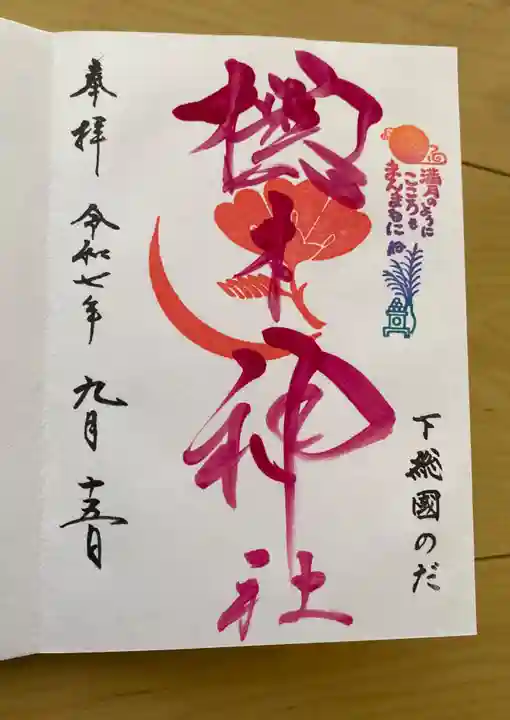 満月のように
こころも
まんまるに
下総國のだ
櫻木神社
奉拝 令和七年 九月 十五日